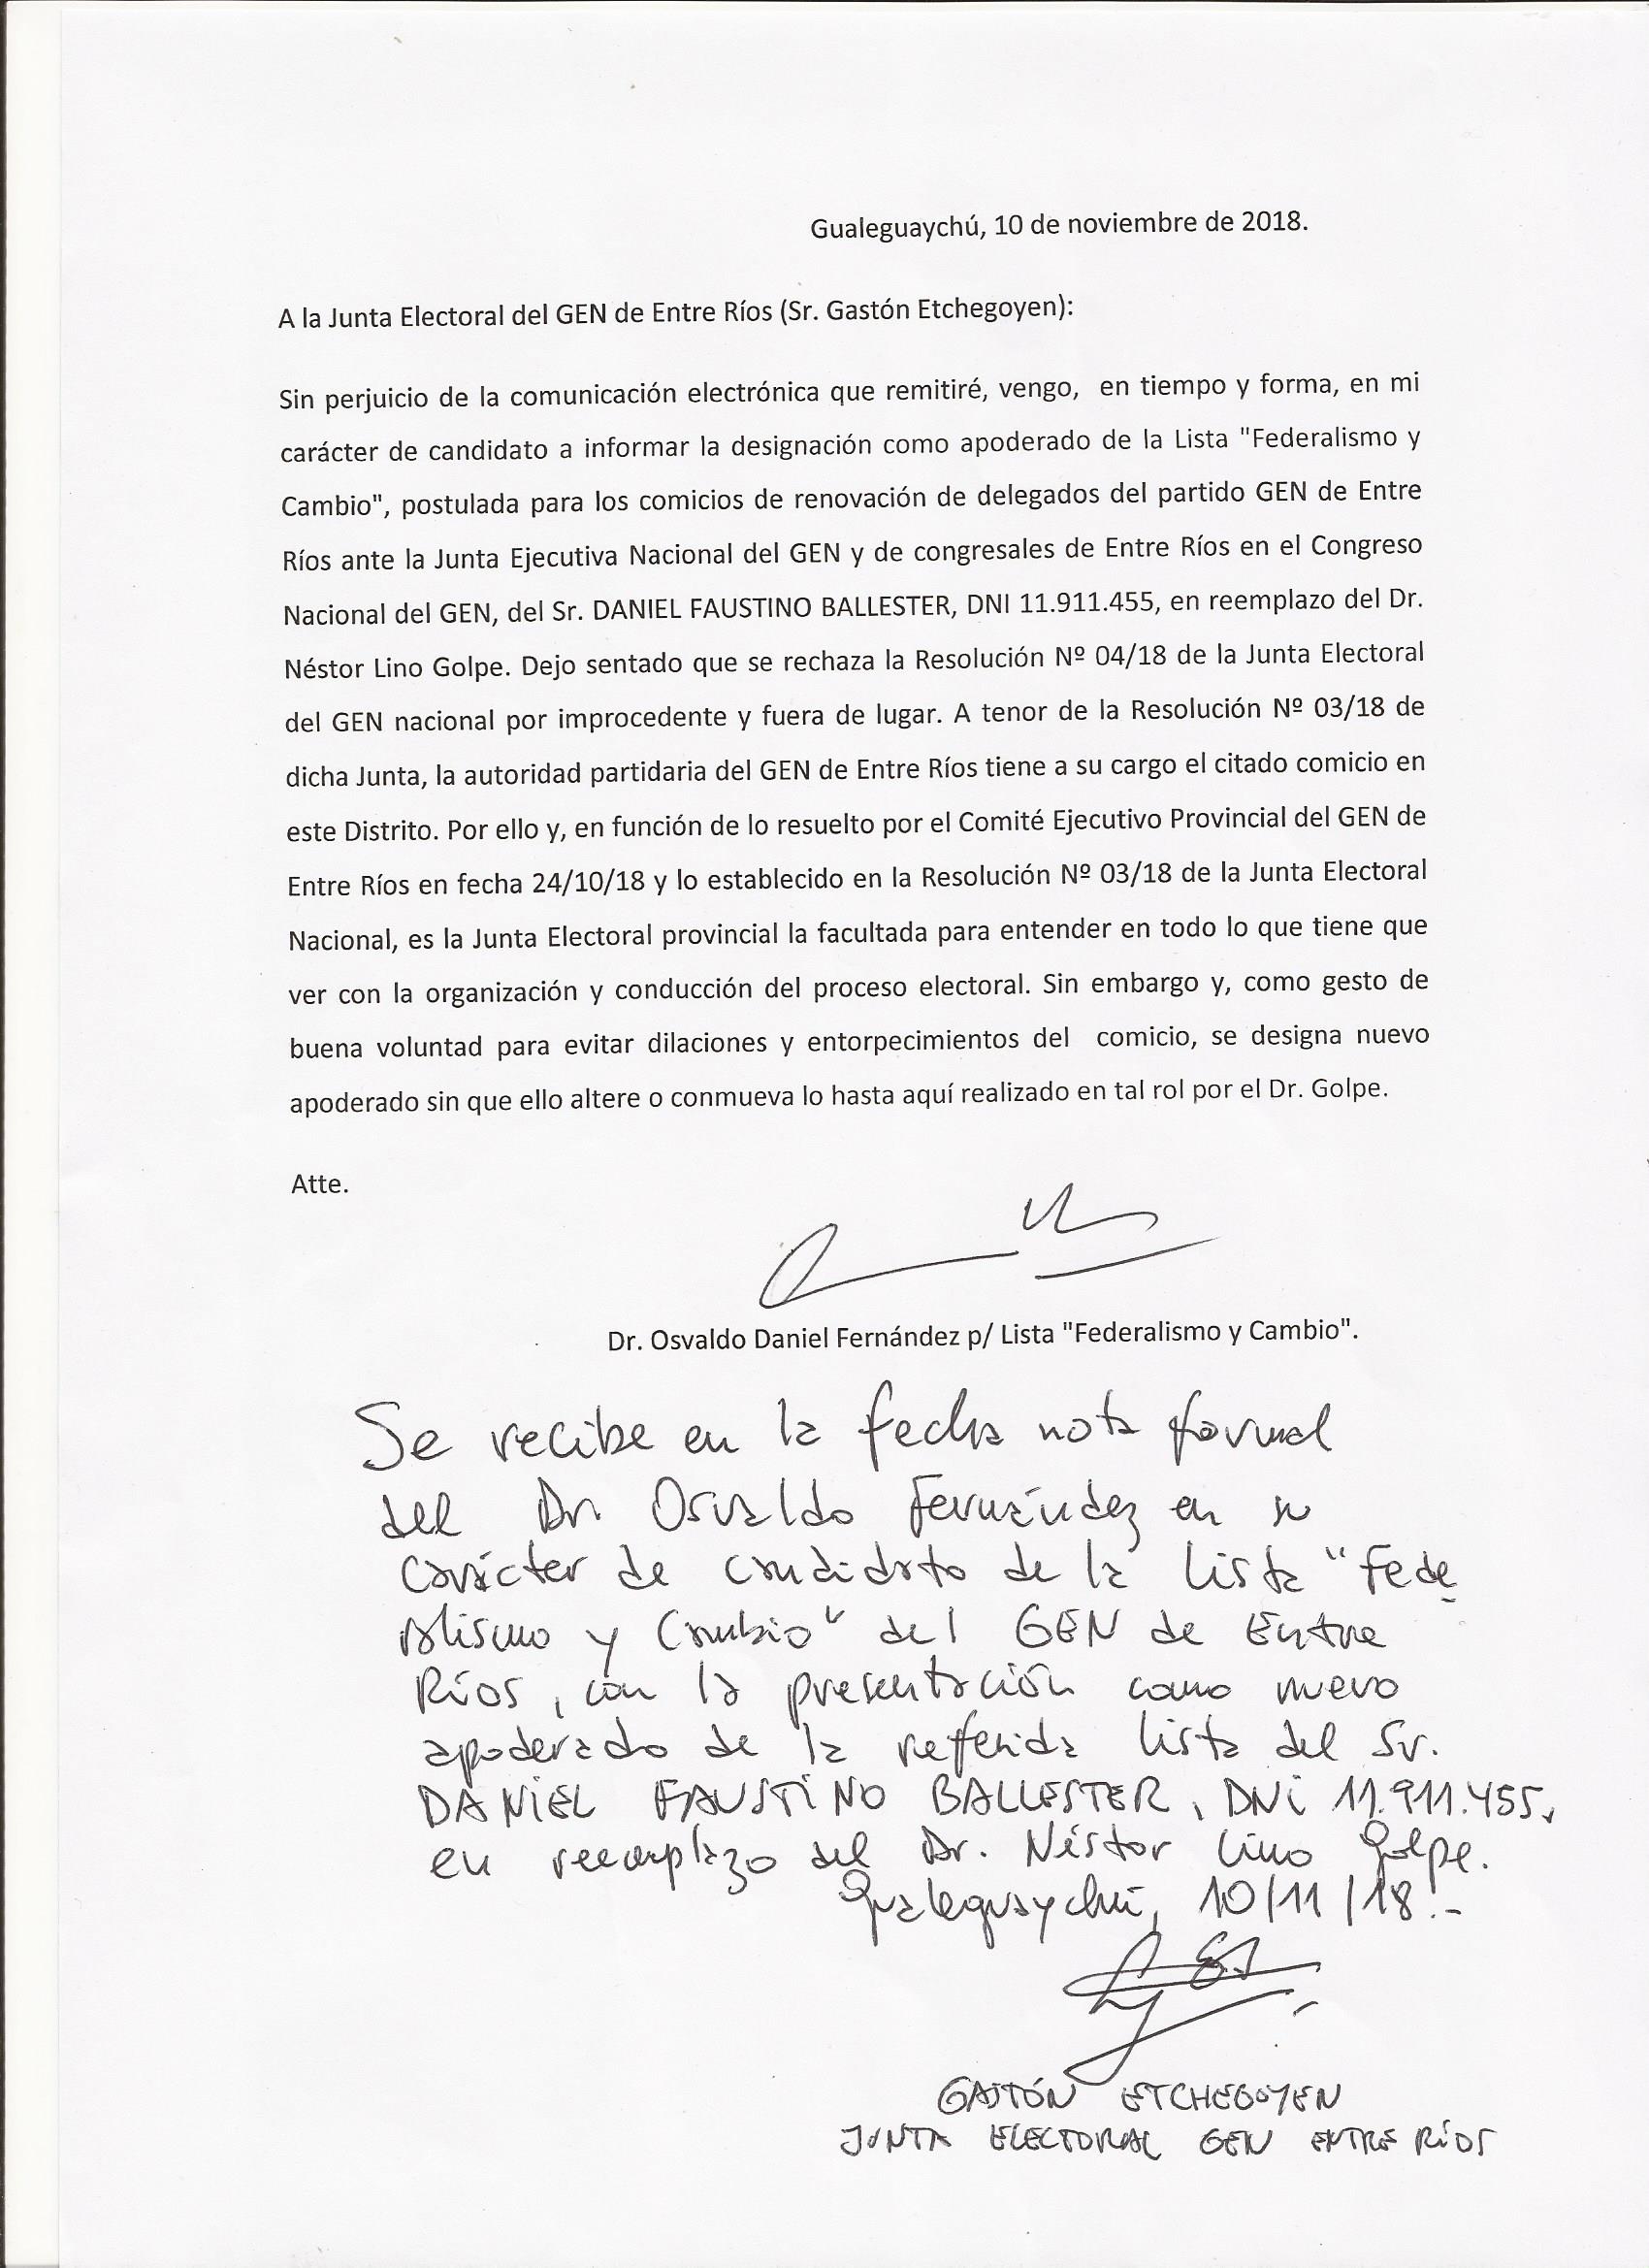 Gualeguaychú, 10 de noviembre de 2018.
A la Junta Electoral del GEN de Entre Ríos (Sr. Gastón Etchegoyen):
Sin perjuicio de la comunicación electrónica que remitiré, vengo, en tiempo y forma, en mi
carácter de candidato a informar la designación como apoderado de la Lista "Federalismo y
Cambio", postulada para los comicios de renovación de delegados del partido GEN de Entre
Ríos ante la Junta Ejecutiva Nacional del GEN y de congresales de Entre Ríos en el Congreso
Nacional del GEN, del Sr. DANIEL FAUSTINO BALLESTER, DNI 11.911.455, en reemplazo del Dr.
Néstor Lino Golpe. Dejo sentado que se rechaza la Resolución Nº 04/18 de la Junta Electoral
del GEN nacional por improcedente y fuera de lugar. A tenor de la Resolución Nº 03/18 de
dicha Junta, la autoridad partidaria del GEN de Entre Ríos tiene a su cargo el citado comicio en
este Distrito. Por ello y, en función de lo resuelto por el Comité Ejecutivo Provincial del GEN de
Entre Ríos en fecha 24/10/18 y lo establecido en la Resolución Nº 03/18 de la Junta Electoral
Nacional, es la Junta Electoral provincial la facultada para entender en todo lo que tiene que
ver con la organización y conducción del proceso electoral. Sin embargo y, como gesto de
buena voluntad para evitar dilaciones y entorpecimientos del comicio, se designa nuevo
apoderado sin que ello altere o conmueva lo hasta aquí realizado en tal rol por el Dr. Golpe.
Atte.
Dr. Osvaldo Daniel Fernández p/ Lista "Federalismo y Cambio".
Se recibe en la fecha nota formal
del Dr. Osvaldo Fernández en su
carácter de candidato de la lista "Fede
ralismo y Cambio" del GEN de Entre
Ríos, con la presentación como nuevo
apoderado de la referida lista del Sr.
DANIEL FAUSTINO BALLESTER, DNI 11.911.455,
en reemplazo del Dr. Néstor Lino Golpe.
Gualeguaychú, 10/11/18.-
GASTÓN ETCHEGOYEN
JUNTA ELECTORAL GEN ENTRE RÍOS